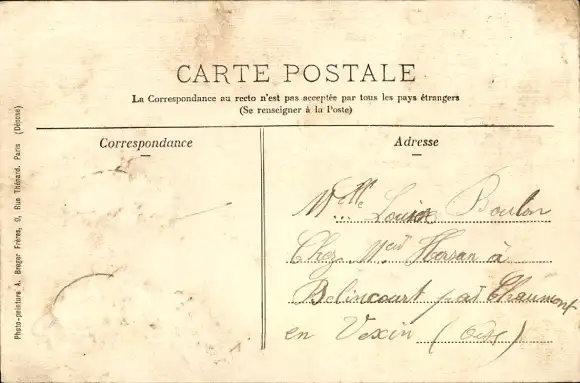 CARTE POSTALE
La Correspondance au recto n'est pas acceptée par tous les pays étrangers
(Se renseigner à la Poste)
Correspondance
Adresse
Melle Louise Boulon
Chez Mr à
Belincourt par Chaumont
en Vexin (Oise)
Photo-peinture A. Breger Frères, 9, Rue Thénard, Paris (Déposé)